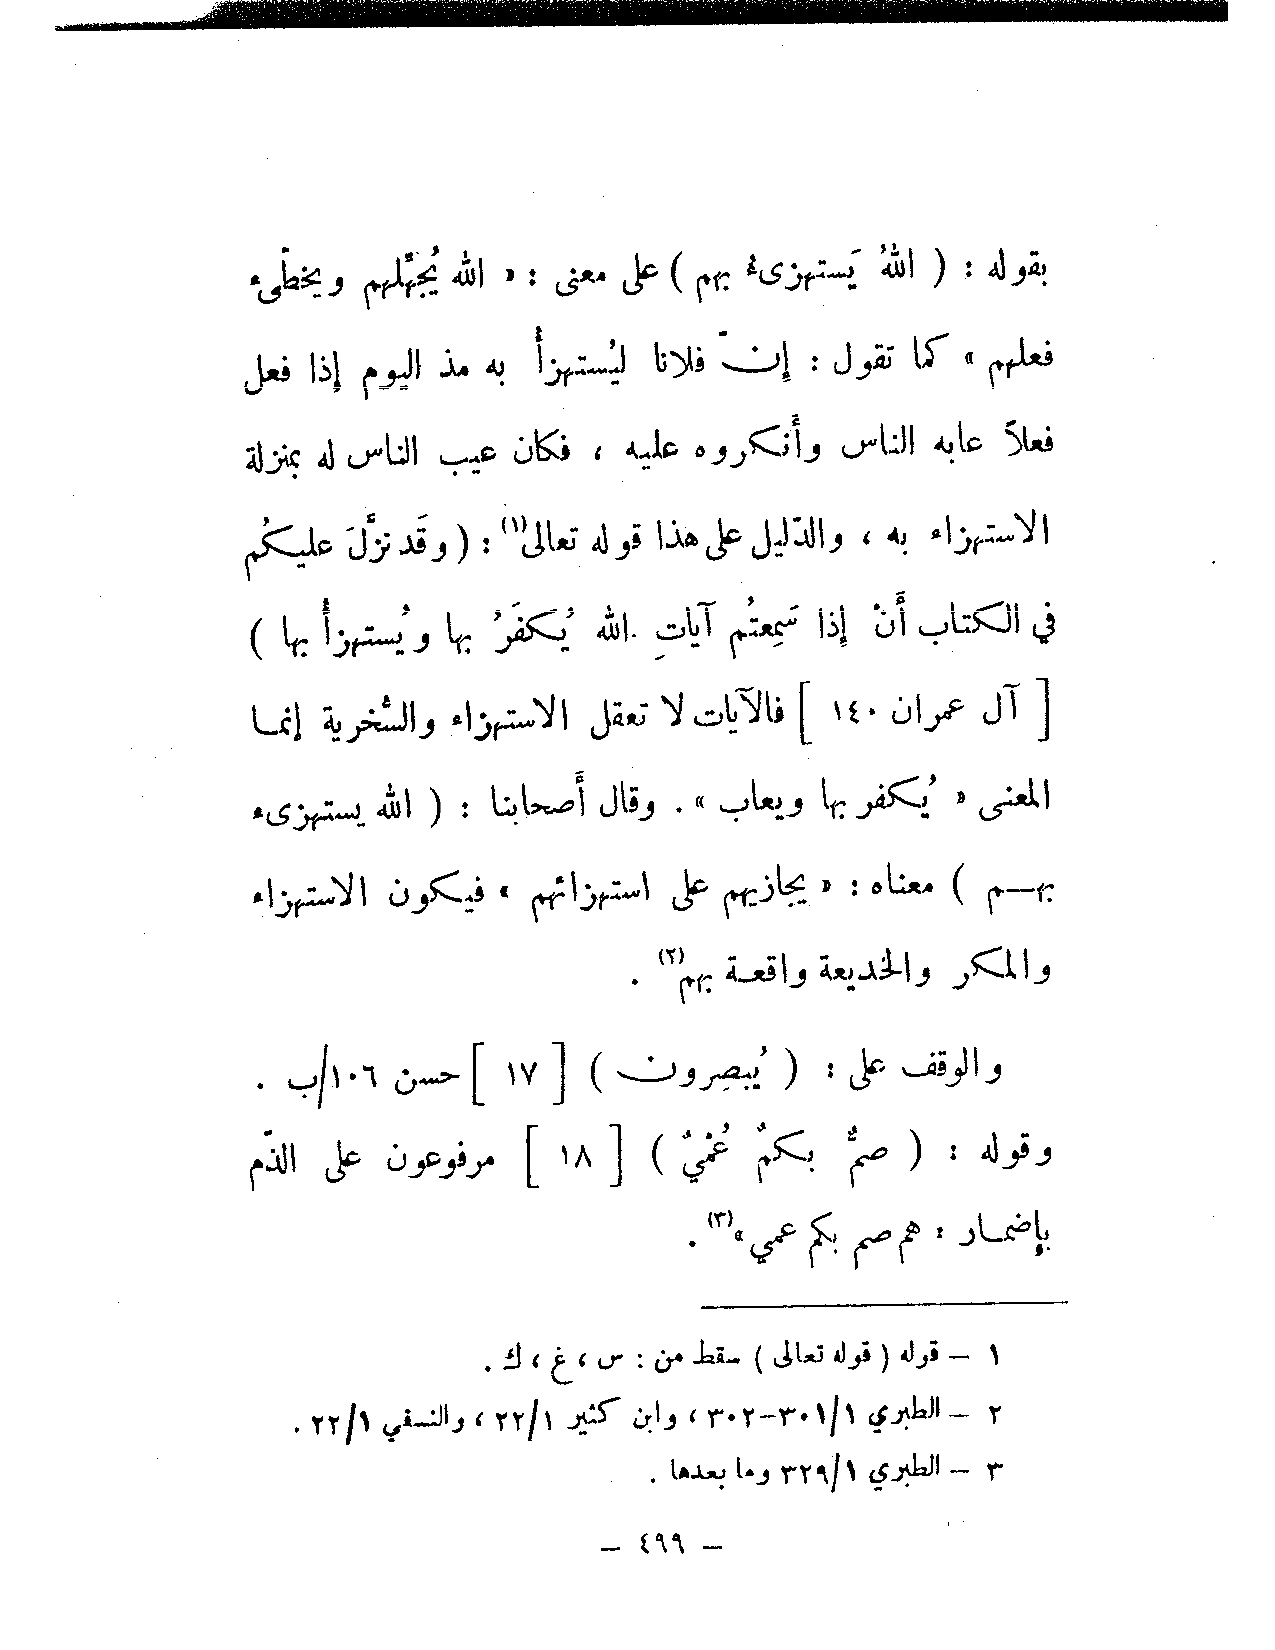 بقوله : ( اللهُ يَستهزىءُ بهم ) على معنى : « الله يُجَهِّلهم ويخطّىء
فعلهم » كما تقول : إنّ فلانا ليُستهزأُ به مذ اليوم إذا فعل
فعلاً عابه الناس وأَنكروه عليه ، فكان عيب الناس له بمنزلة
الاستهزاء به ، والدّليل على هذا قوله تعالى(١) : ( وقَد نزَّلَ عليكُم
في الكتاب أَنْ إذا سَمِعتُم آياتِ الله يُكفَرُ بها ويُستهزأُ بها )
[ آل عمران ١٤٠ ] فالآيات لا تعقل الاستهزاء والسُّخرية إنما
المعنى « يُكفر بها ويعاب » . وقال أَصحابنا : ( الله يستهزىء
بهم ) معناه : « يجازيهم على استهزائهم » فيكون الاستهزاء
والمكر والخديعة واقعة بهم(٢) .
والوقف على : ( يُبصِرون ) [ ١٧ ] حسن ١٠٦/ب .
وقوله : ( صمٌّ بكمٌ عُمْيٌ ) [ ١٨ ] مرفوعون على الذّم
بإضمار « هم صم بكم عمي »(٣) .
١ – قوله ( قوله تعالى ) سقط من : س ، غ ، ك .
٢ – الطبري ٣٠١/١–٣٠٢ ، وابن كثير ٢٢/١ ، والنسفي ٢٢/١ .
٣ – الطبري ٣٢٩/١ وما بعدها .
– ٤٩٩ –